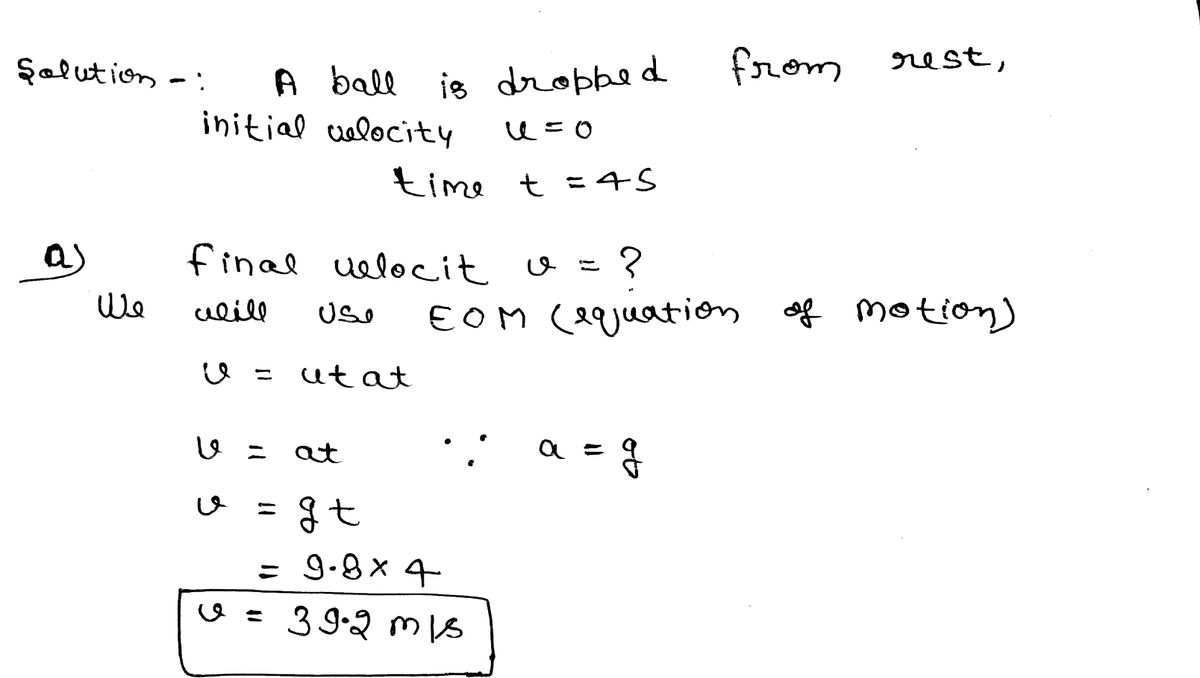 Solution -: A ball is dropped from rest,
initial velocity u = 0
time t = 4s
a) final velocit v = ?
We will use EOM (equation of motion)
v = u+at
v = at ∵ a = g
v = gt
= 9.8 × 4
v = 39.2 m/s